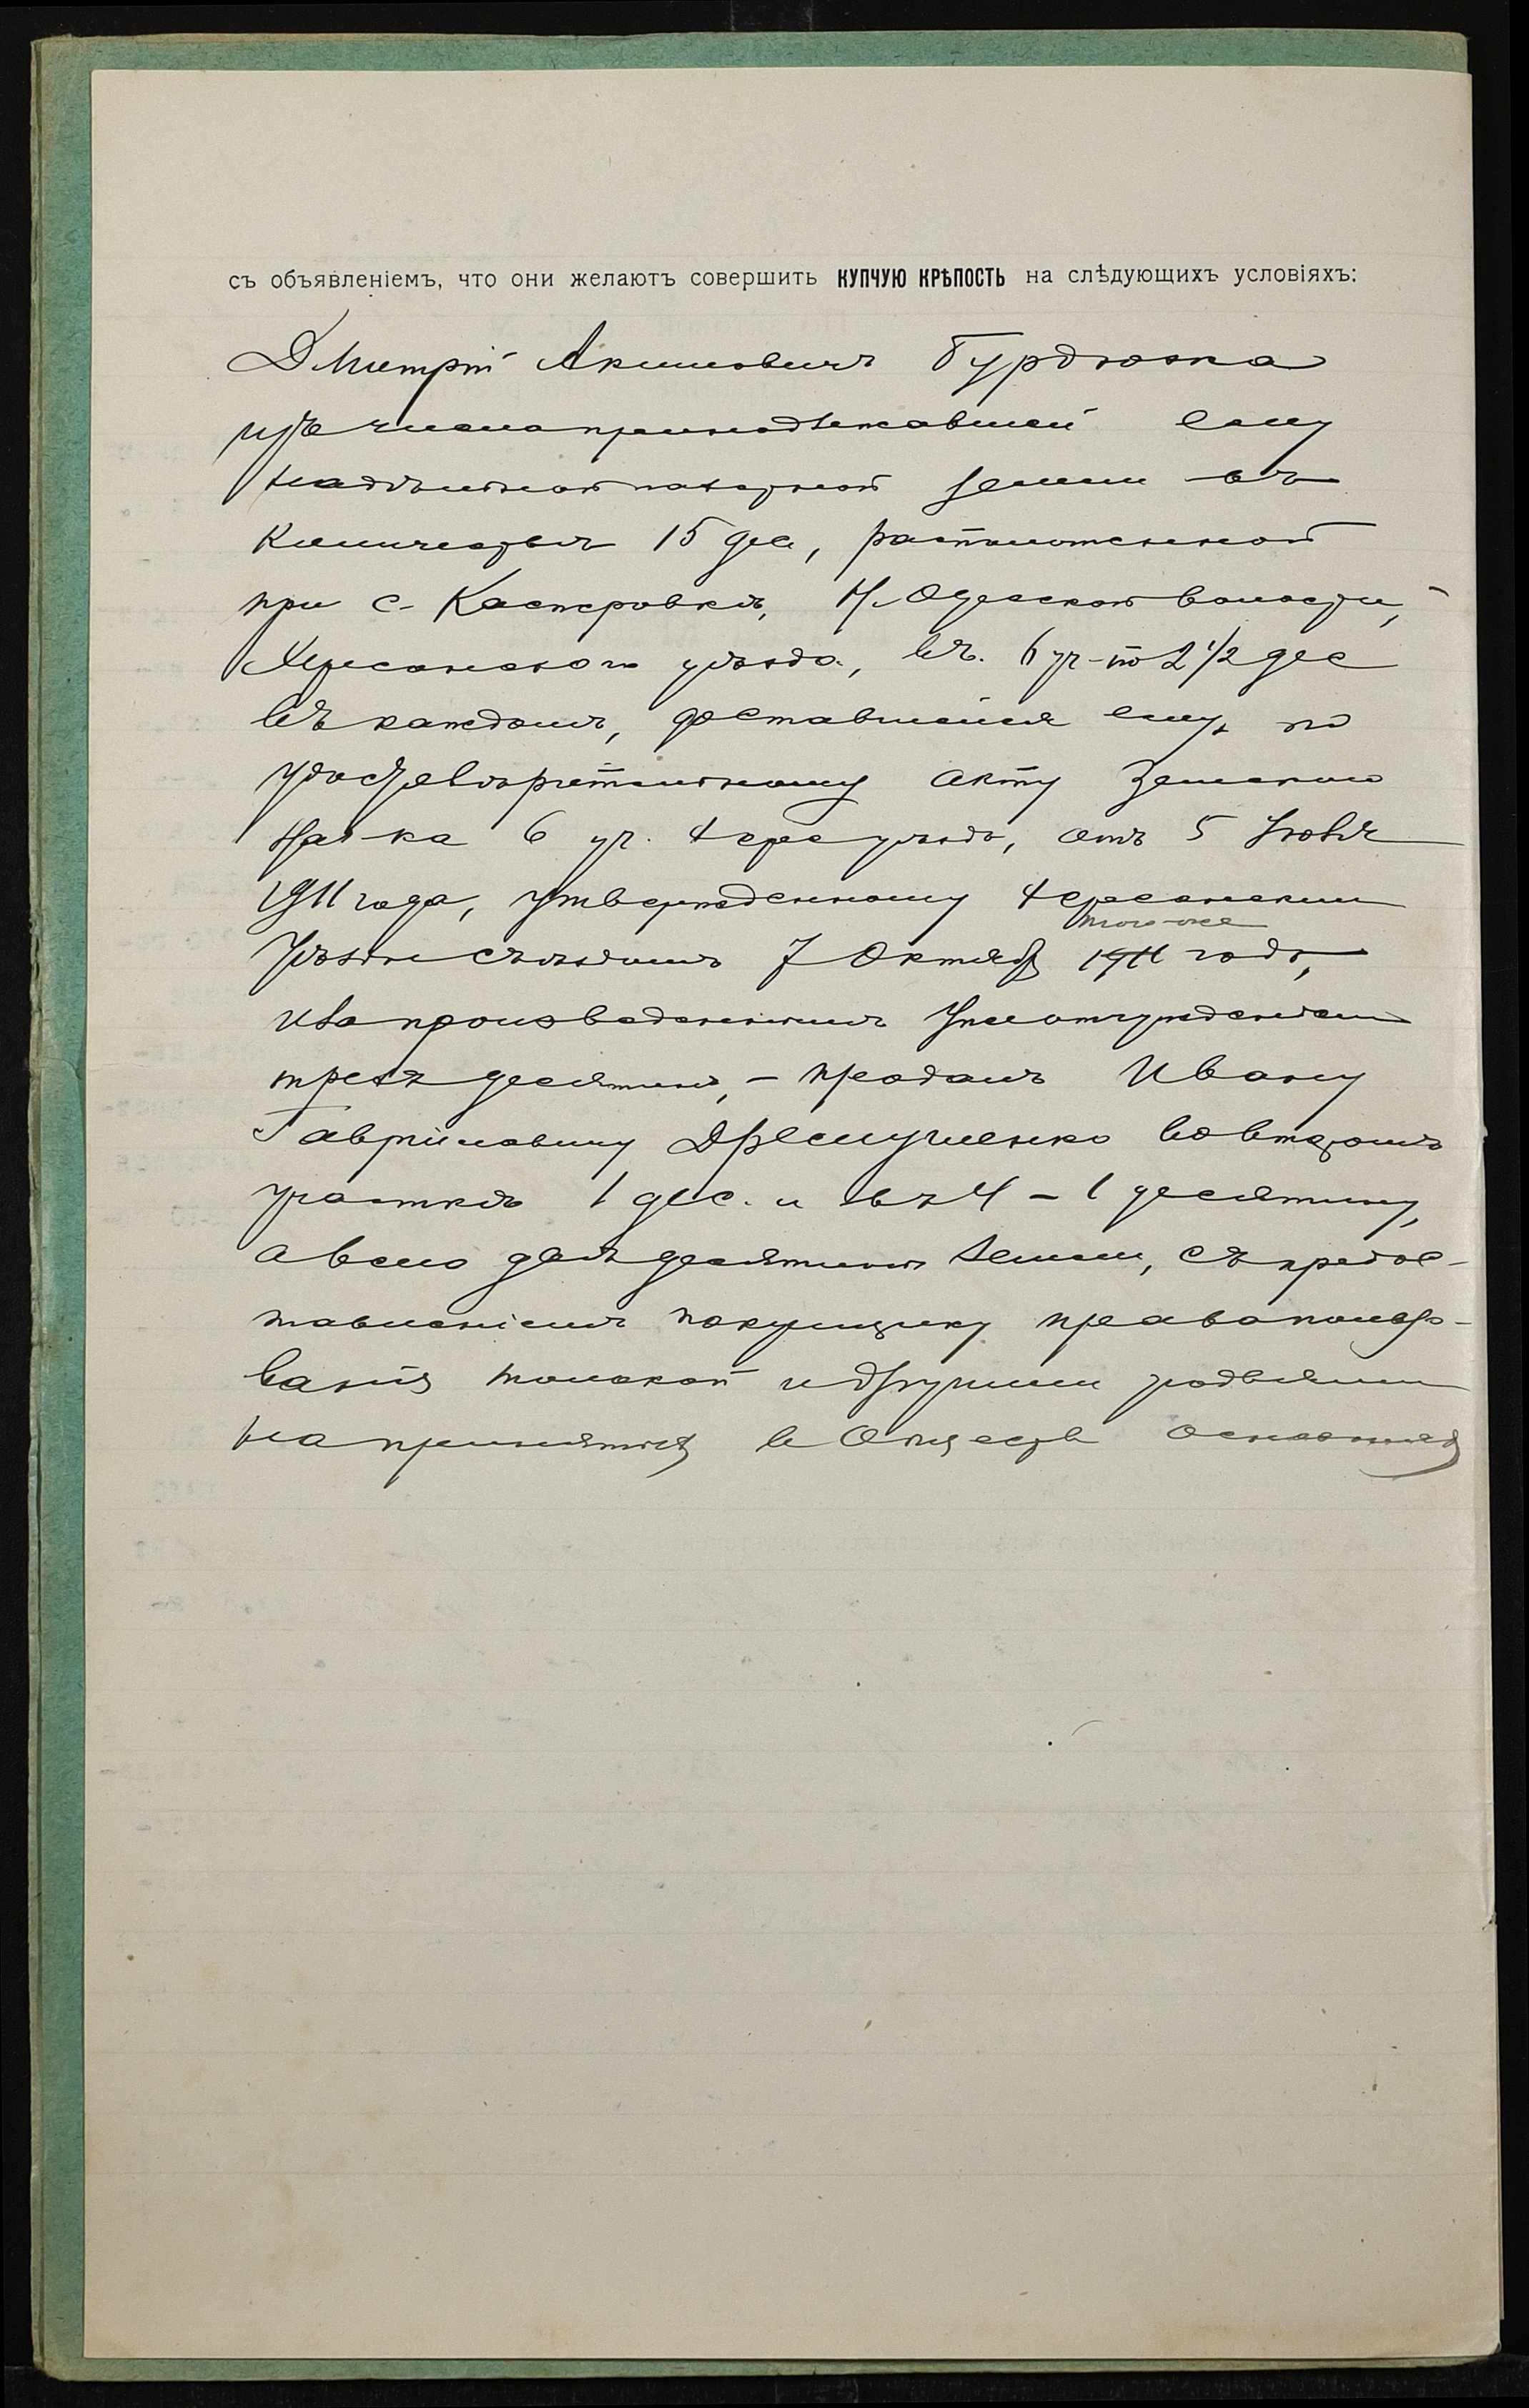 съ объявленіемъ, что они желаютъ совершить КУПЧУЮ КРѢПОСТЬ на слѣдующихъ условіяхъ:
Дмитрій Акимовичъ Бурдюжа
изъ числа принадлежавшей ему
надѣльной пахарной земли въ
количествѣ 15 дес, расположенной
при с. Касперовкѣ, Н. Одесской волости,
Херсонскаго уѣзда, въ 6 уч. по 2 1/2 дес
въ каждомъ, доставшейся ему по
удостовѣрительному акту Земскаго
Нач-ка 6 уч. Херс уѣзда, отъ 5 Іюня
1911 года, утвержденному Херсонским
того-же
Уѣздн Съѣздомъ 7 Октябр 1911 года,
и за произведеннымъ отчужденіем
трехъ десятинъ, - продалъ Ивану
Гавриловичу Дремлученко во второмъ
участкѣ 1 дес. и въ 4 - 1 десятину,
а всего двѣ десятины земли, съ предос-
тавленіемъ покупщику права пользо-
ванія толокой и другими угодьями
на принятых в Обществ основаніях